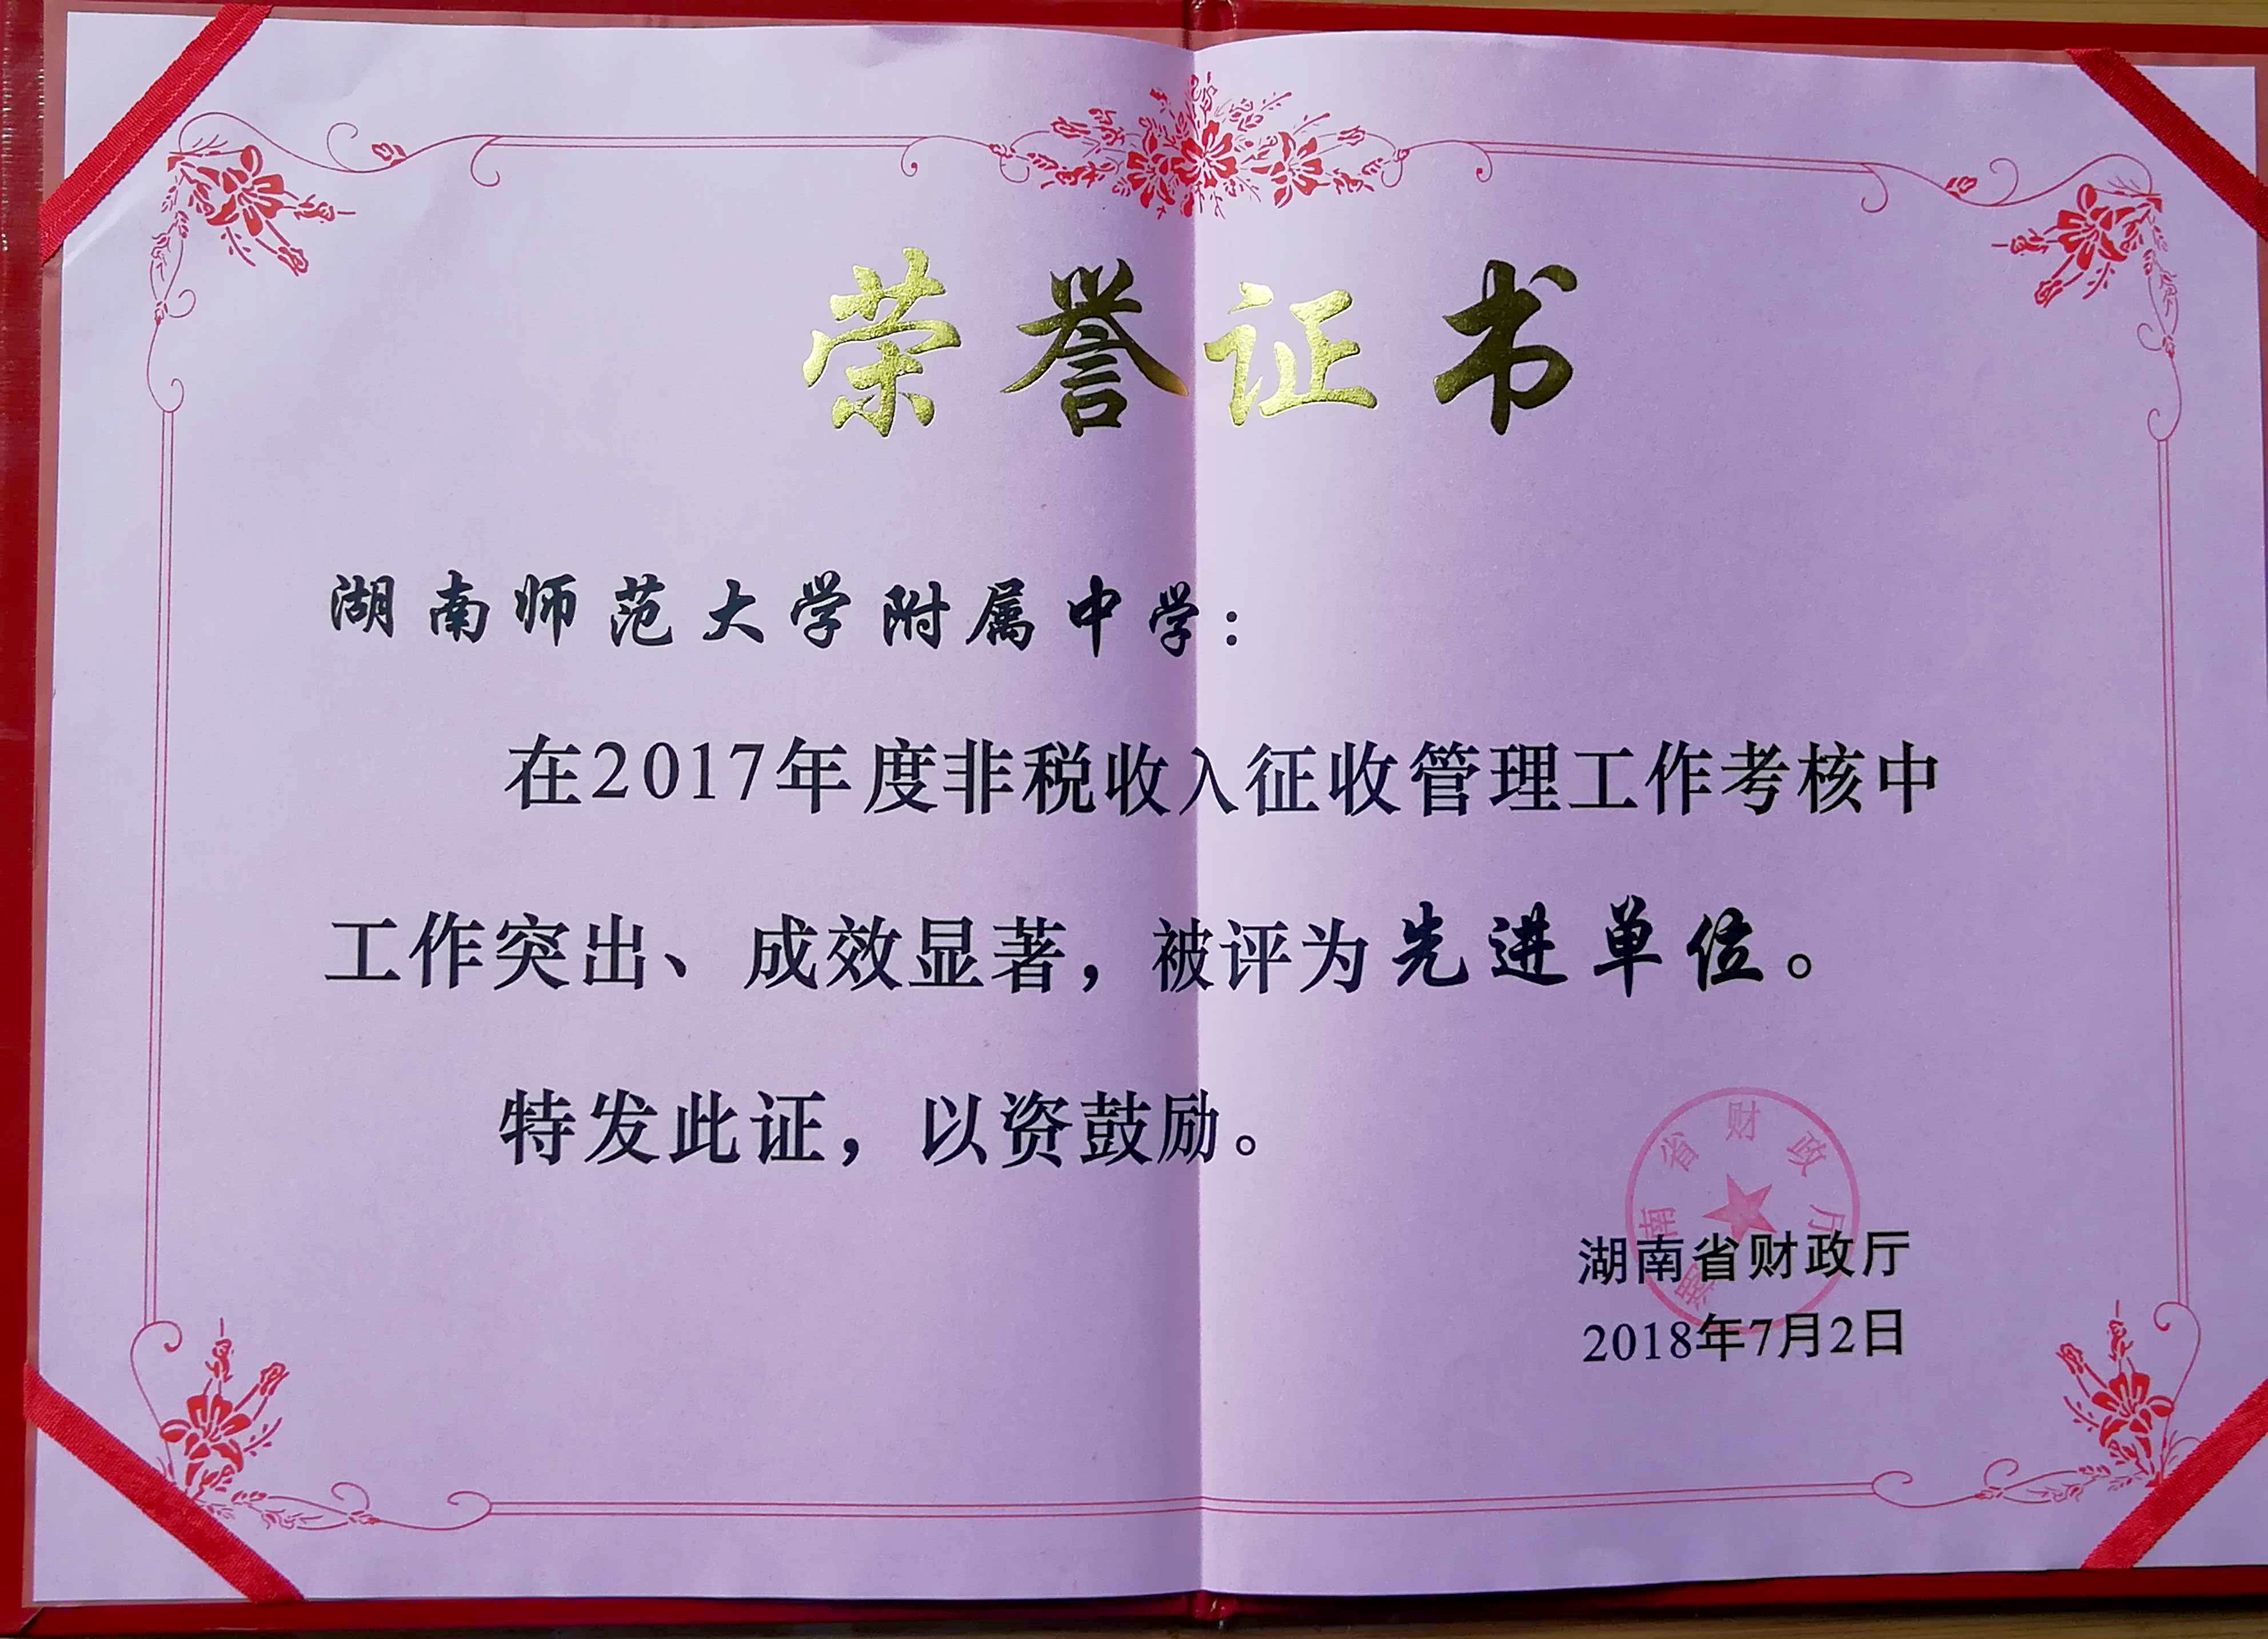 荣誉证书
湖南师范大学附属中学：
在2017年度非税收入征收管理工作考核中
工作突出、成效显著，被评为先进单位。
特发此证，以资鼓励。
湖南省财政厅
湖南省财政厅
2018年7月2日